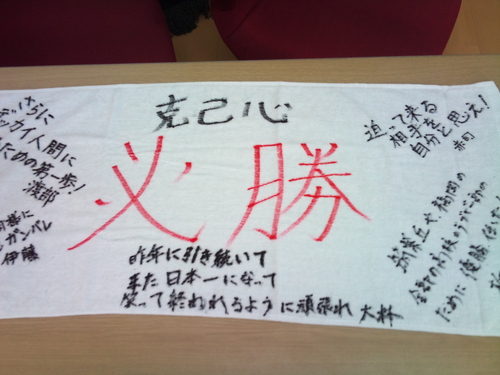 克己心
必勝
さらに
カイ人間に
ための第一歩!
渡部
ガンバレ
伊藤
昨年に引き続いて
また日本一になって
笑って終われるように頑張れ 大林
迫って来る
相手を
自分と思え!
赤司
福岡の
全部の高校の
ために優勝